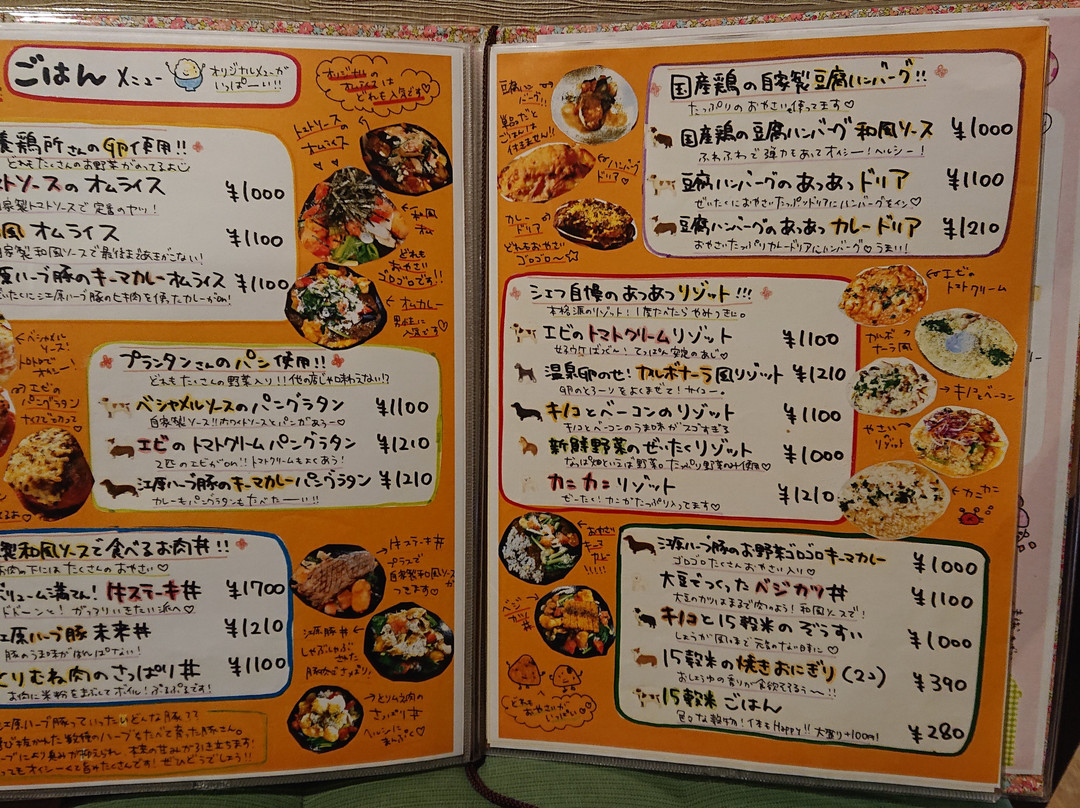 ごはん メニュー
オリジナルメニューが
いっぱーい!!
オリジナルの
オムライスは
どれも人気です♡
養鶏所さんの卵使用!!
どれもたくさんのお野菜がのってるよ
トマトソースのオムライス ¥1000
自家製トマトソースで定番のヤツ!
和風オムライス ¥1100
自家製和風ソースで最後まであきがこない!
江原ハーブ豚のキーマカレーオムライス ¥1100
ぜいたくに江原ハーブ豚のヒキ肉を使ったカレーがon!
トマトソースの
オムライス
和風
オム
どれも
おやさい
ゴロゴロです!!
オムカレー
男性に
人気です♡
プランタンさんのパン使用!!
どれもたくさんの野菜入り!!他の店じゃ味わえない!?
ベシャメルソースのパングラタン ¥1100
自家製ソース!!ホワイトソースとパンがあう〜♡
エビのトマトクリームパングラタン ¥1210
2匹のエビがon!!トマトクリームもよくあう!
江原ハーブ豚のキーマカレーパングラタン ¥1210
カレーもパングラタンもたべたーい!!
ベシャメル
ソース!
エビの
パングラタン
製和風ソースで食べるお肉丼!!
お肉の下にはたくさんのおやさい♡
ボリューム満てん!牛ステーキ丼 ¥1700
ドドーンと!ガッツリいきたい派へ♡
江原ハーブ豚未来丼 ¥1210
豚のうま味がはんぱない!
とりむね肉のさっぱり丼 ¥1100
お肉に米粉をまぶしてボイル!ぷるぷるです!
牛ステーキ丼
プラスで
自家製和風ソースが
つきます♡
江原豚丼
しゃぶしゃぶ
された
豚肉がさっぱり。
とりむね肉の
さっぱり丼
ヘルシーに
まんぷく♡
江原ハーブ豚っていったいどんな豚??
選び抜かれた数種のハーブをたべて育った豚さん。
ハーブにより臭みが抑えられ、本来の甘みが引き立ちます!
とってもオイシーくて旨みたくさんです!ぜひどうでしょう!!
国産鶏の自家製豆腐ハンバーグ!!
たっぷりのおやさい使ってます♡
国産鶏の豆腐ハンバーグ和風ソース ¥1000
ふわふわで弾力もあってオイシー!ヘルシー!
豆腐ハンバーグのあつあつドリア ¥1100
ぜいたくにおやさいたっぷりドリアにハンバーグをイン♡
豆腐ハンバーグのあつあつカレードリア ¥1210
おやさいたっぷりカレードリアにハンバーグ♡うまい!
豆腐ハン
バーグ!!
単品だと
ごはんは
付きません!!
ハンバーグ
ドリア♡
カレーの
ドリア
どれもおやさい
ゴロゴロ〜☆
シェフ自慢のあつあつリゾット!!!
本格派のリゾット!1度たべたらやみつきに。
エビのトマトクリームリゾット ¥1100
せるうけばつぐん!てっぱん安定のあじ♡
温泉卵のせ!カルボナーラ風リゾット ¥1210
卵のとろーりをよくまぜて!サイコー。
キノコとベーコンのリゾット ¥1100
キノコとベーコンのうま味がスゴすぎる
新鮮野菜のぜいたくリゾット ¥1000
なっぱ畑といえば野菜のたっぷり野菜のみ使用♡
カニカニリゾット ¥1210
ぜいたく!カニがたっぷり入ってます♡
エビの
トマトクリーム
カルボ
ナーラ風
キノコとベーコン
やさい
リゾット
カニカニ
江原ハーブ豚のお野菜ゴロゴロキーマカレー ¥1000
ゴロゴロたくさんおやさい入り♡
大豆でつくったベジカツ丼 ¥1100
大豆のカツはまるで肉のよう!和風ソースで!
キノコと15穀米のぞうすい ¥1000
しょうが風味で元気のない日に♡
15穀米の焼きおにぎり(2コ) ¥390
おしょうゆの香りが食欲そそるう〜!!
15穀米ごはん ¥280
色々な穀物!体もHappy!!大盛り+100円!
おやさい
キーマ
カレー
!!!!!
ベジ
カツ
丼
どれも
おやさいが
いっぱい